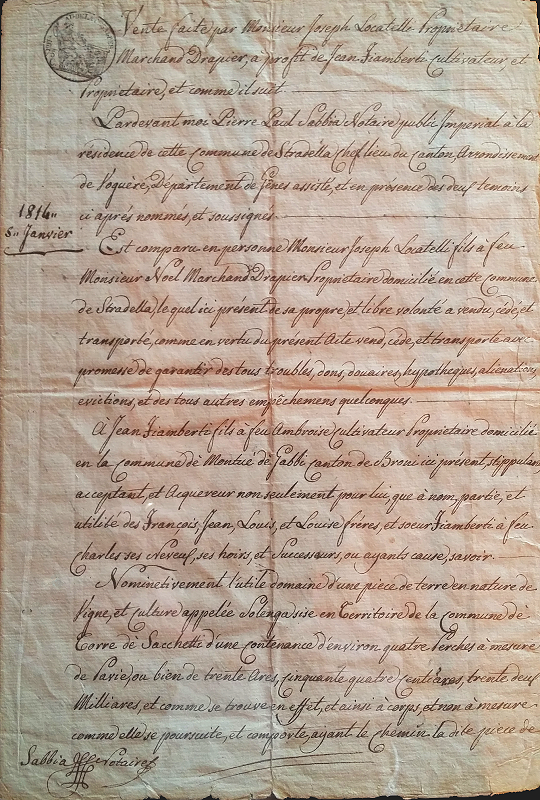 Vente faite par Monsieur Joseph Locatelli Propriétaire
Marchand Drapier, à profit de Jean Fiamberti Cultivateur, et
Propriétaire, et comme il suet.
Pardevant moi Pierre Paul Sabbia Notaire public Imperial à la
résidence de cette Commune de Stradella Chef lieu du Canton Arrondissement
de Voguère, Département de Gênes assisté, et en présence des deux temoins
ci après nommés, et soussignes.
1814
5 Janvier
Est comparu en personne Monsieur Joseph Locatelli fils à feu
Monsieur Noel Marchand Drapier Propriétaire domicilié en cette commune
de Stradella, le quel ici présent de sa propre, et libre volonté a vendu, cédé, et
transporté, comme en vertu du présent Acte vend, cède, et transporte avec
promesse de garantir des tous troubles, dons, douaires, hypotheques, alienations,
evictions, et des tous autres empêchemens quelconques.
A Jean Fiamberti fils à feu Ambroise Cultivateur Propriétaire domicilié
en la commune de Montué de Gabbi Canton de Broni ici présent, stippulant,
acceptant, et Acquereur non seulement pour lui, que à nom, partie, et
utilité des François, Jean, Louis, et Louise frères, et soeur Fiamberti à feu
Charles ses Neveux, ses hoirs, et Successeurs, ou ayants cause, savoir.
Nominetivement l'utile domaine d'une piece de terre en nature de
Vigne, et culture appelée Solenga sise en Territoire de la commune de
Torre de Sacchetti d'une contenance d'environ quatre Perches à mesure
de Pavie, ou bien de trente Ares, cinquante quatre Centiares, trente deux
Milliares, et comme se trouve en effet, et ainsi à corps, et non à mesure
comme elle se poursuite, et comporte, ayant le Chemin la dite piece de
Sabbia Notaire